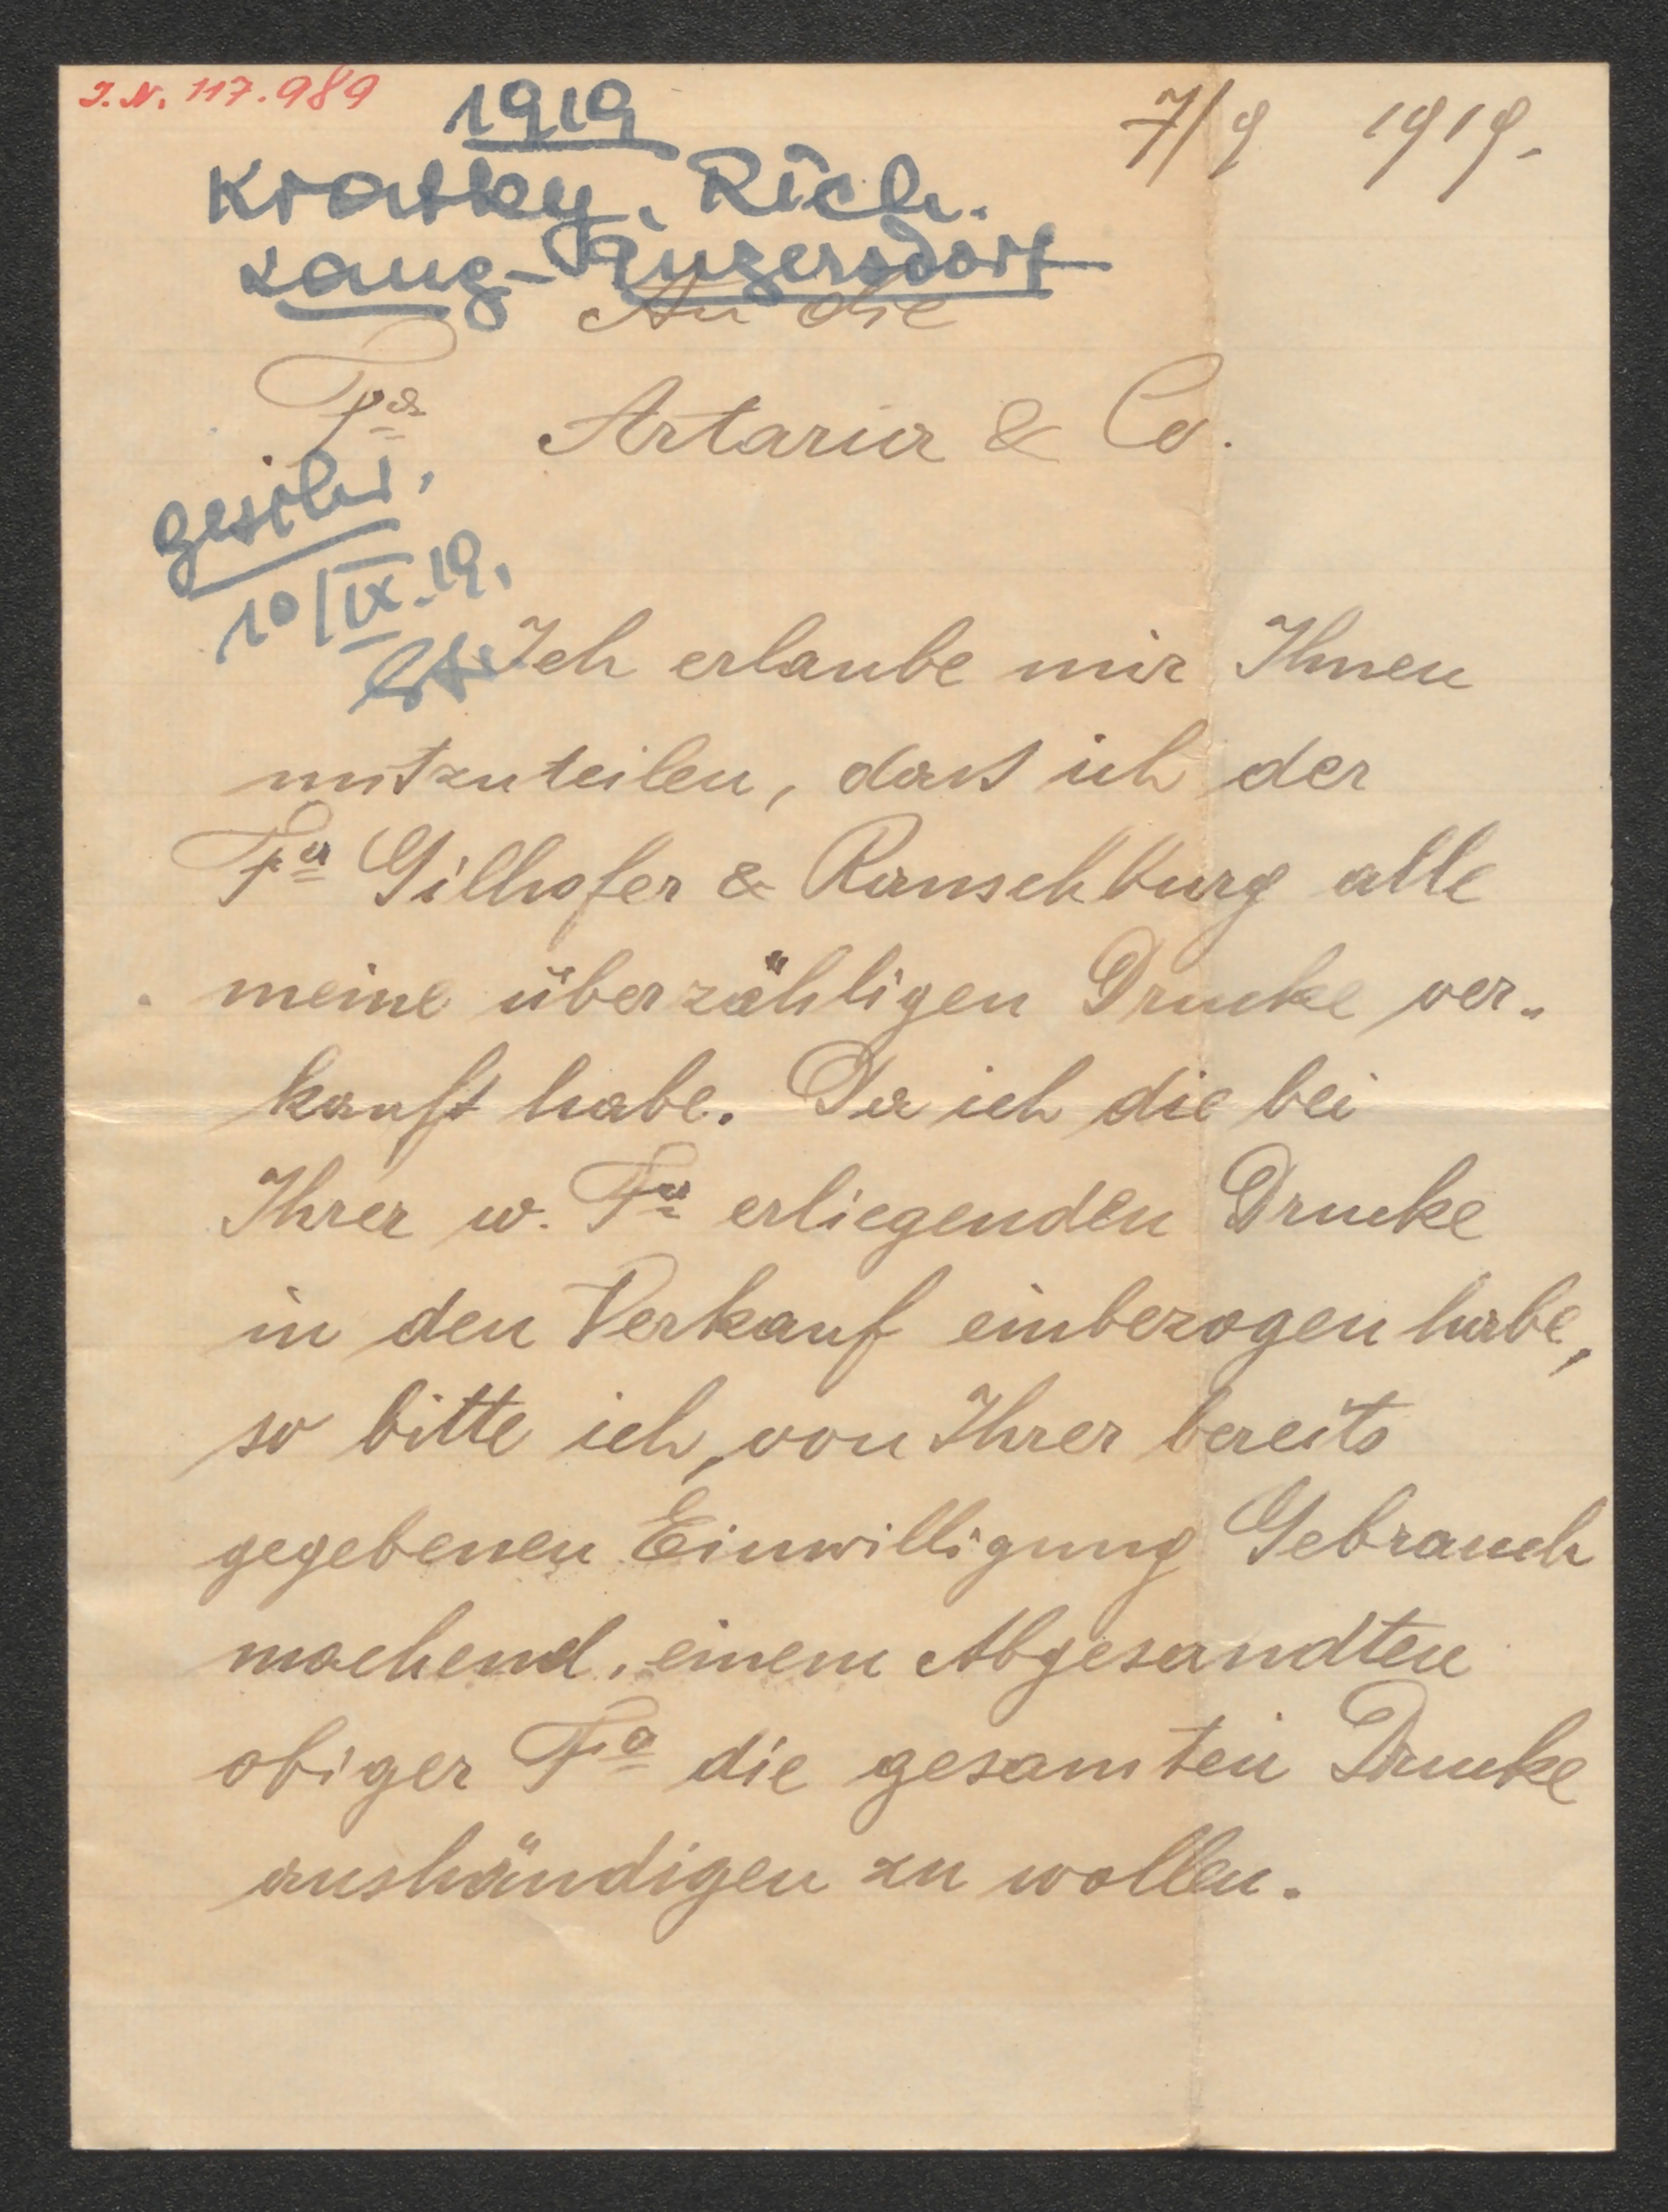 I. N. 117.989
1919
7/9 1919.
Kratky, Rich.
Lang-Enzersdorf
An die
Fa Artaria & Co.
geschr.
10/IX.19.
Ich erlaube mir Ihnen
mitzuteilen, dass ich der
Fa Gilhofer & Ranschburg alle
meine überzähligen Drucke ver-
kauft habe. Da ich die bei
Ihrer w. Fa erliegenden Drucke
in den Verkauf einbezogen habe,
so bitte ich, von Ihrer bereits
gegebenen Einwilligung Gebrauch
machend, einem Abgesandten
obiger Fa die gesamten Drucke
aushändigen zu wollen.